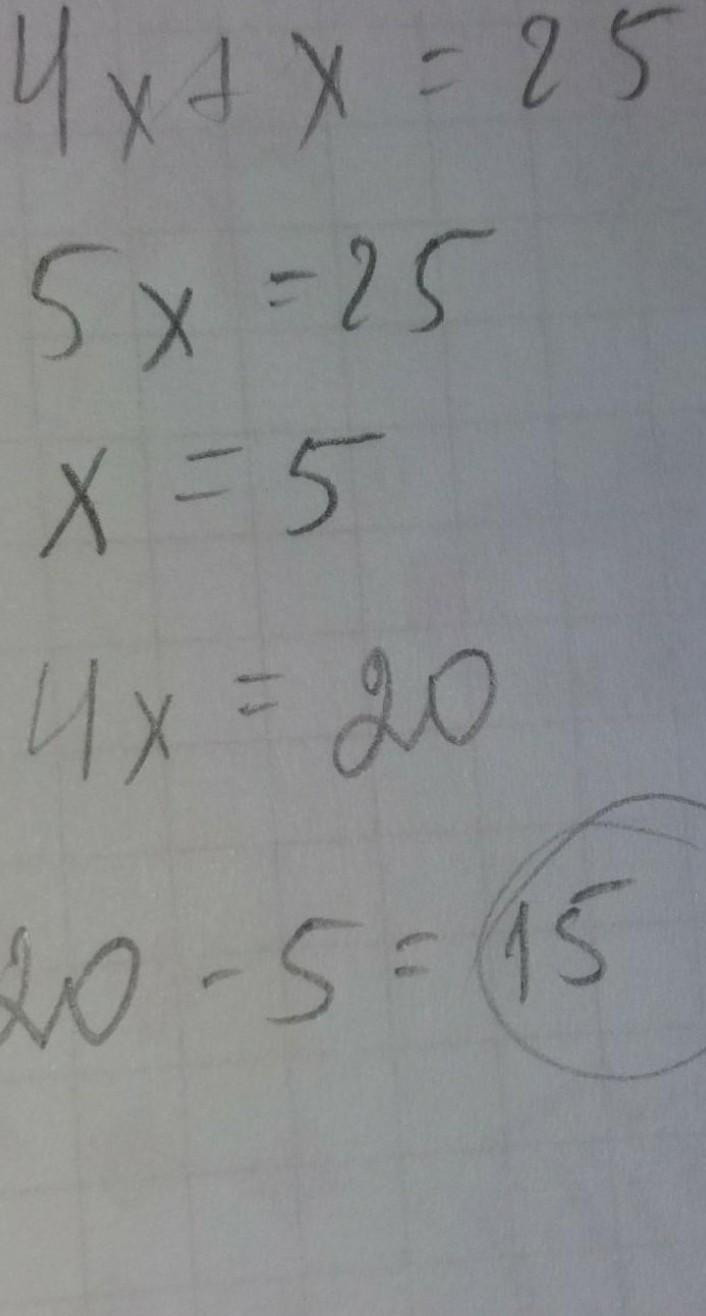 4x + x = 25
5x = 25
x = 5
4x = 20
20 - 5 = 15